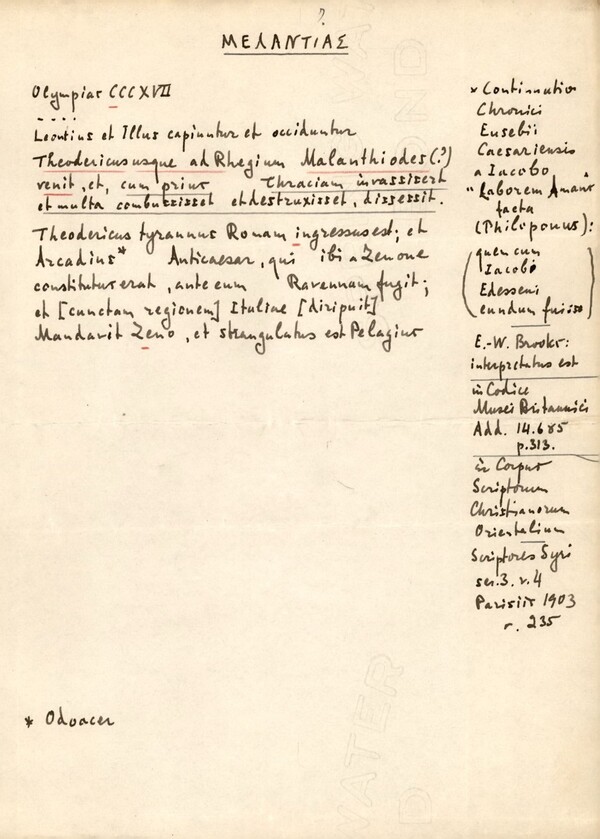 ?
ΜΕΛΑΝΤΙΑΣ
Olympias CCCXVII
....
Leontius et Illus capiuntur et occiduntur
Theodericus usque ad Rhegium Malanthiodes (?)
venit, et, cum prius Thraciam invassisset
et multa combussisset et destruxisset, dissessit.
Theodericus tyrannus Romam ingressus est; et
Arcadius* Anticaesar, qui ibi a Zenone
constitutus erat, ante eum Ravennam fugit;
et [cunctam regionem] Italiae [diripuit]
Mandavit Zeno, et strangulatus est Pelagius
* Continuatio
Chronici
Eusebii
Caesariensis
a Iacobo
"Laborem Amans
facta
(Philiponus):
quem cum
Iacobo
Edesseni
eundum fuisse)
E.-W. Brooks:
interpretatus est
in Codice
Musei Britannici
Add. 14.685
p.313.
in Corpus
Scriptorum
Christianorum
Orientalium
Scriptores Syri
ser.3. v.4
Parisiis 1903
r. 235
* Odoacer
WATER